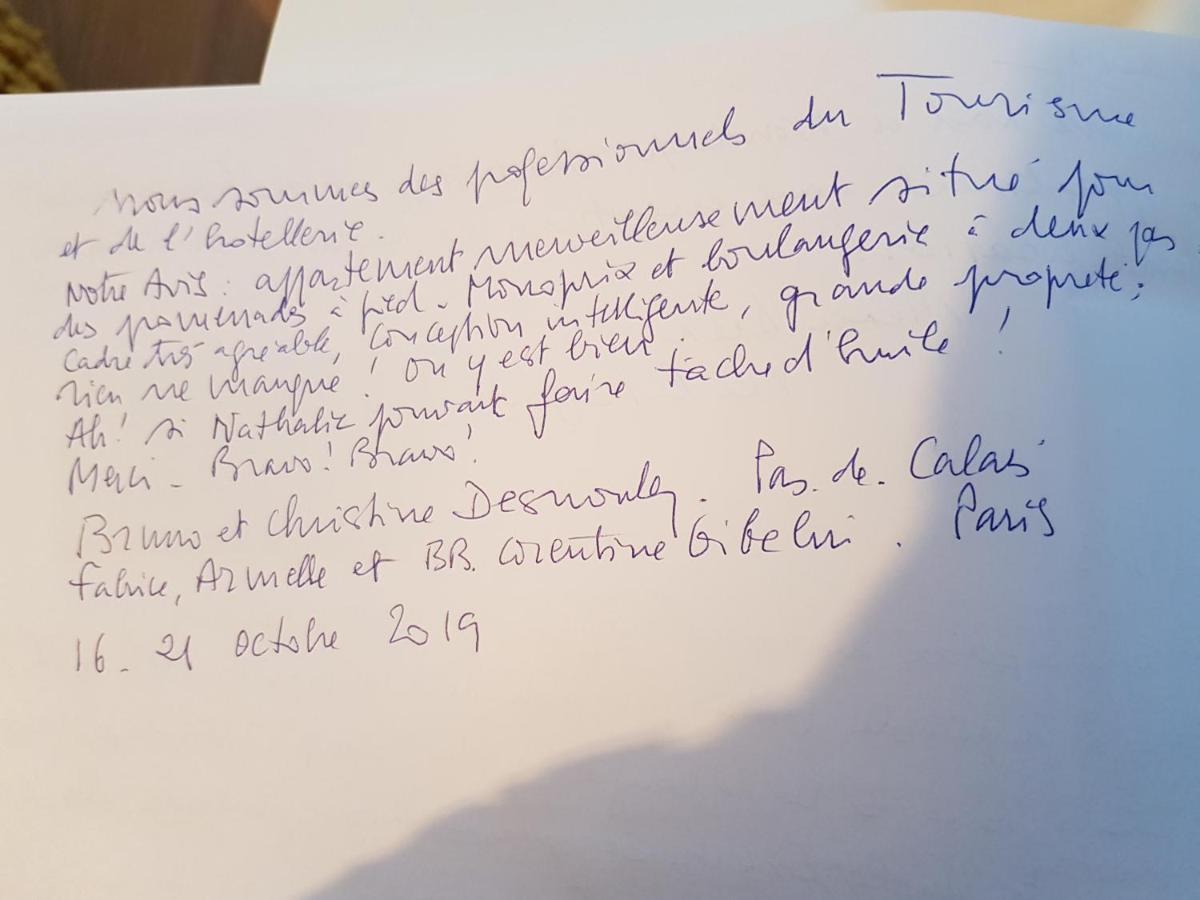 Nous sommes des professionnels du Tourisme
et de l'hotellerie.
Notre Avis : appartement merveilleusement situé pour
des promenades à pied - Monoprix et boulangerie à deux pas
Cadre très agréable, conception intelligente, grande propreté ;
rien ne manque ! On y est bien.
Ah ! si Nathalie pouvait faire tache d'huile !
Merci - Bravo ! Bravo !
Bruno et Christine Desnoulez. Pas. de. Calais
Fabrice, Armelle et BB. Corentine Gibelin . Paris
16 - 21 octobre 2019